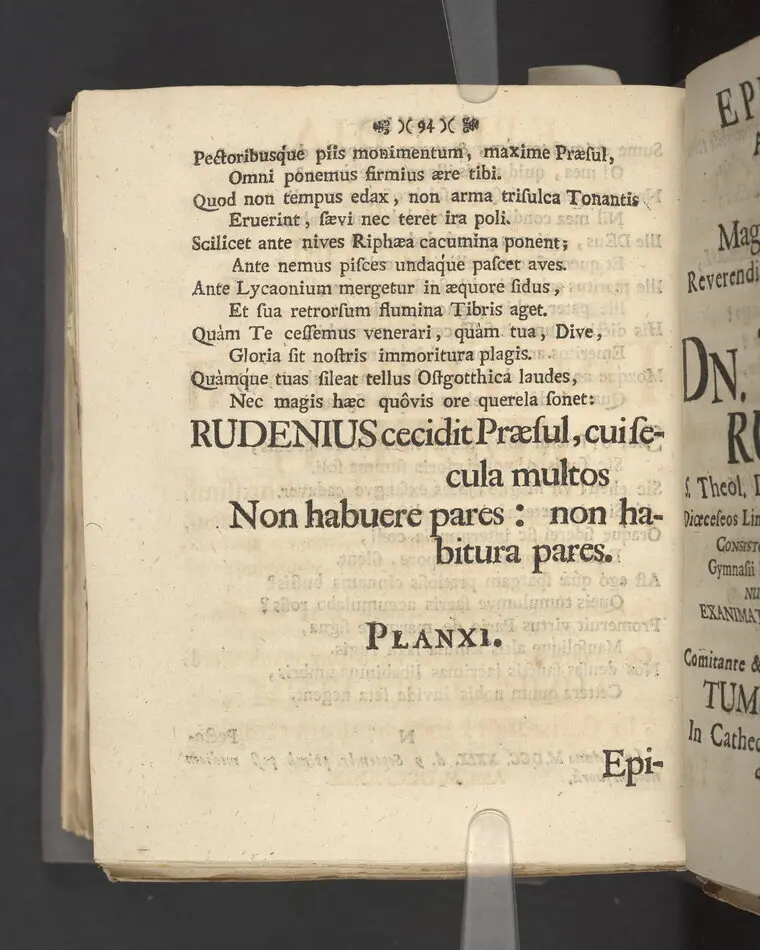 )( 94 )(
Pectoribusq́ue piis monimentum, maxime Præſul,
Omni ponemus firmius ære tibi.
Quod non tempus edax, non arma triſulca Tonantis
Eruerint, ſævi nec teret ira poli.
Scilicet ante nives Riphæa cacumina ponent;
Ante nemus piſces undaq́ue paſcet aves.
Ante Lycaonium mergetur in æquore ſidus,
Et ſua retrorſum flumina Tibris aget.
Quàm Te ceſſemus venerari, quàm tua, Dive,
Gloria ſit noſtris immoritura plagis.
Quàmq́ue tuas ſileat tellus Oſtgotthica laudes,
Nec magis hæc quôvis ore querela ſonet:
RUDENIUS cecidit Præſul, cui ſe-
cula multos
Non habuere pares : non ha-
bitura pares.
PLANXI.
Epi-
Mag
Reverendi
DN.
S. Theol.
Diœceſeos Lin
CONSIST
Gymnaſii
EXANIMA
Comitante &
TUM
In Cathe